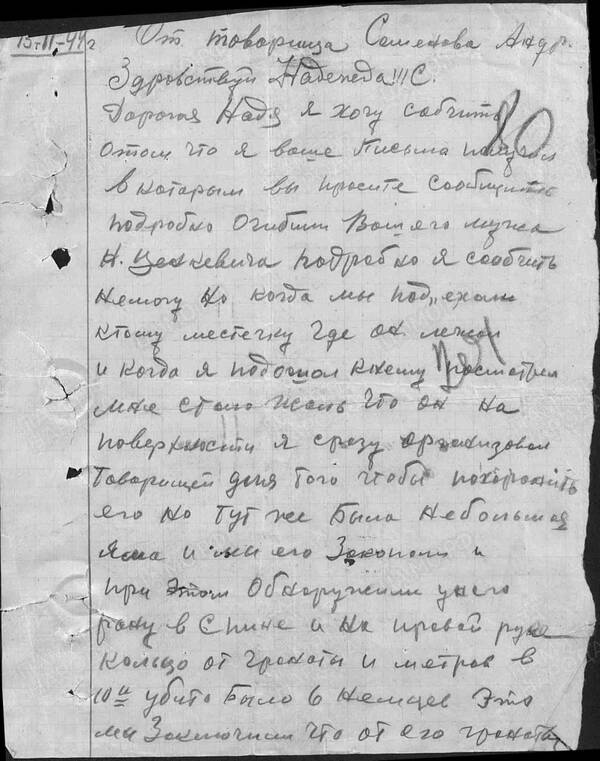 15-II-44 г От товарища Семенова Андр.
Здравствуй Надежда!!! С.
Дорогая Надя я хочу сабчить
Отом что я ваше Письма получил
в которым вы просите сообщить
подробко Огибши Вашего мужа
Н. Ценкевича подробко я сообчить
Немогу Но когда мы под,,ехали
ктому местечку где он лежал
и когда я подошол кнему Посмотрел
мне стало жаль что он на
поверхности я сразу организовал
Товарищей для того чтобы похоронить
его но тут же Была небольшая
яма и мы его Закопали и
при этом Обнаружили унего
рану в Спине и на правой руке
Кольцо от гранаты и метров в
10и убито было 6 немцев Это
мы Заключили что от его гранаты
80